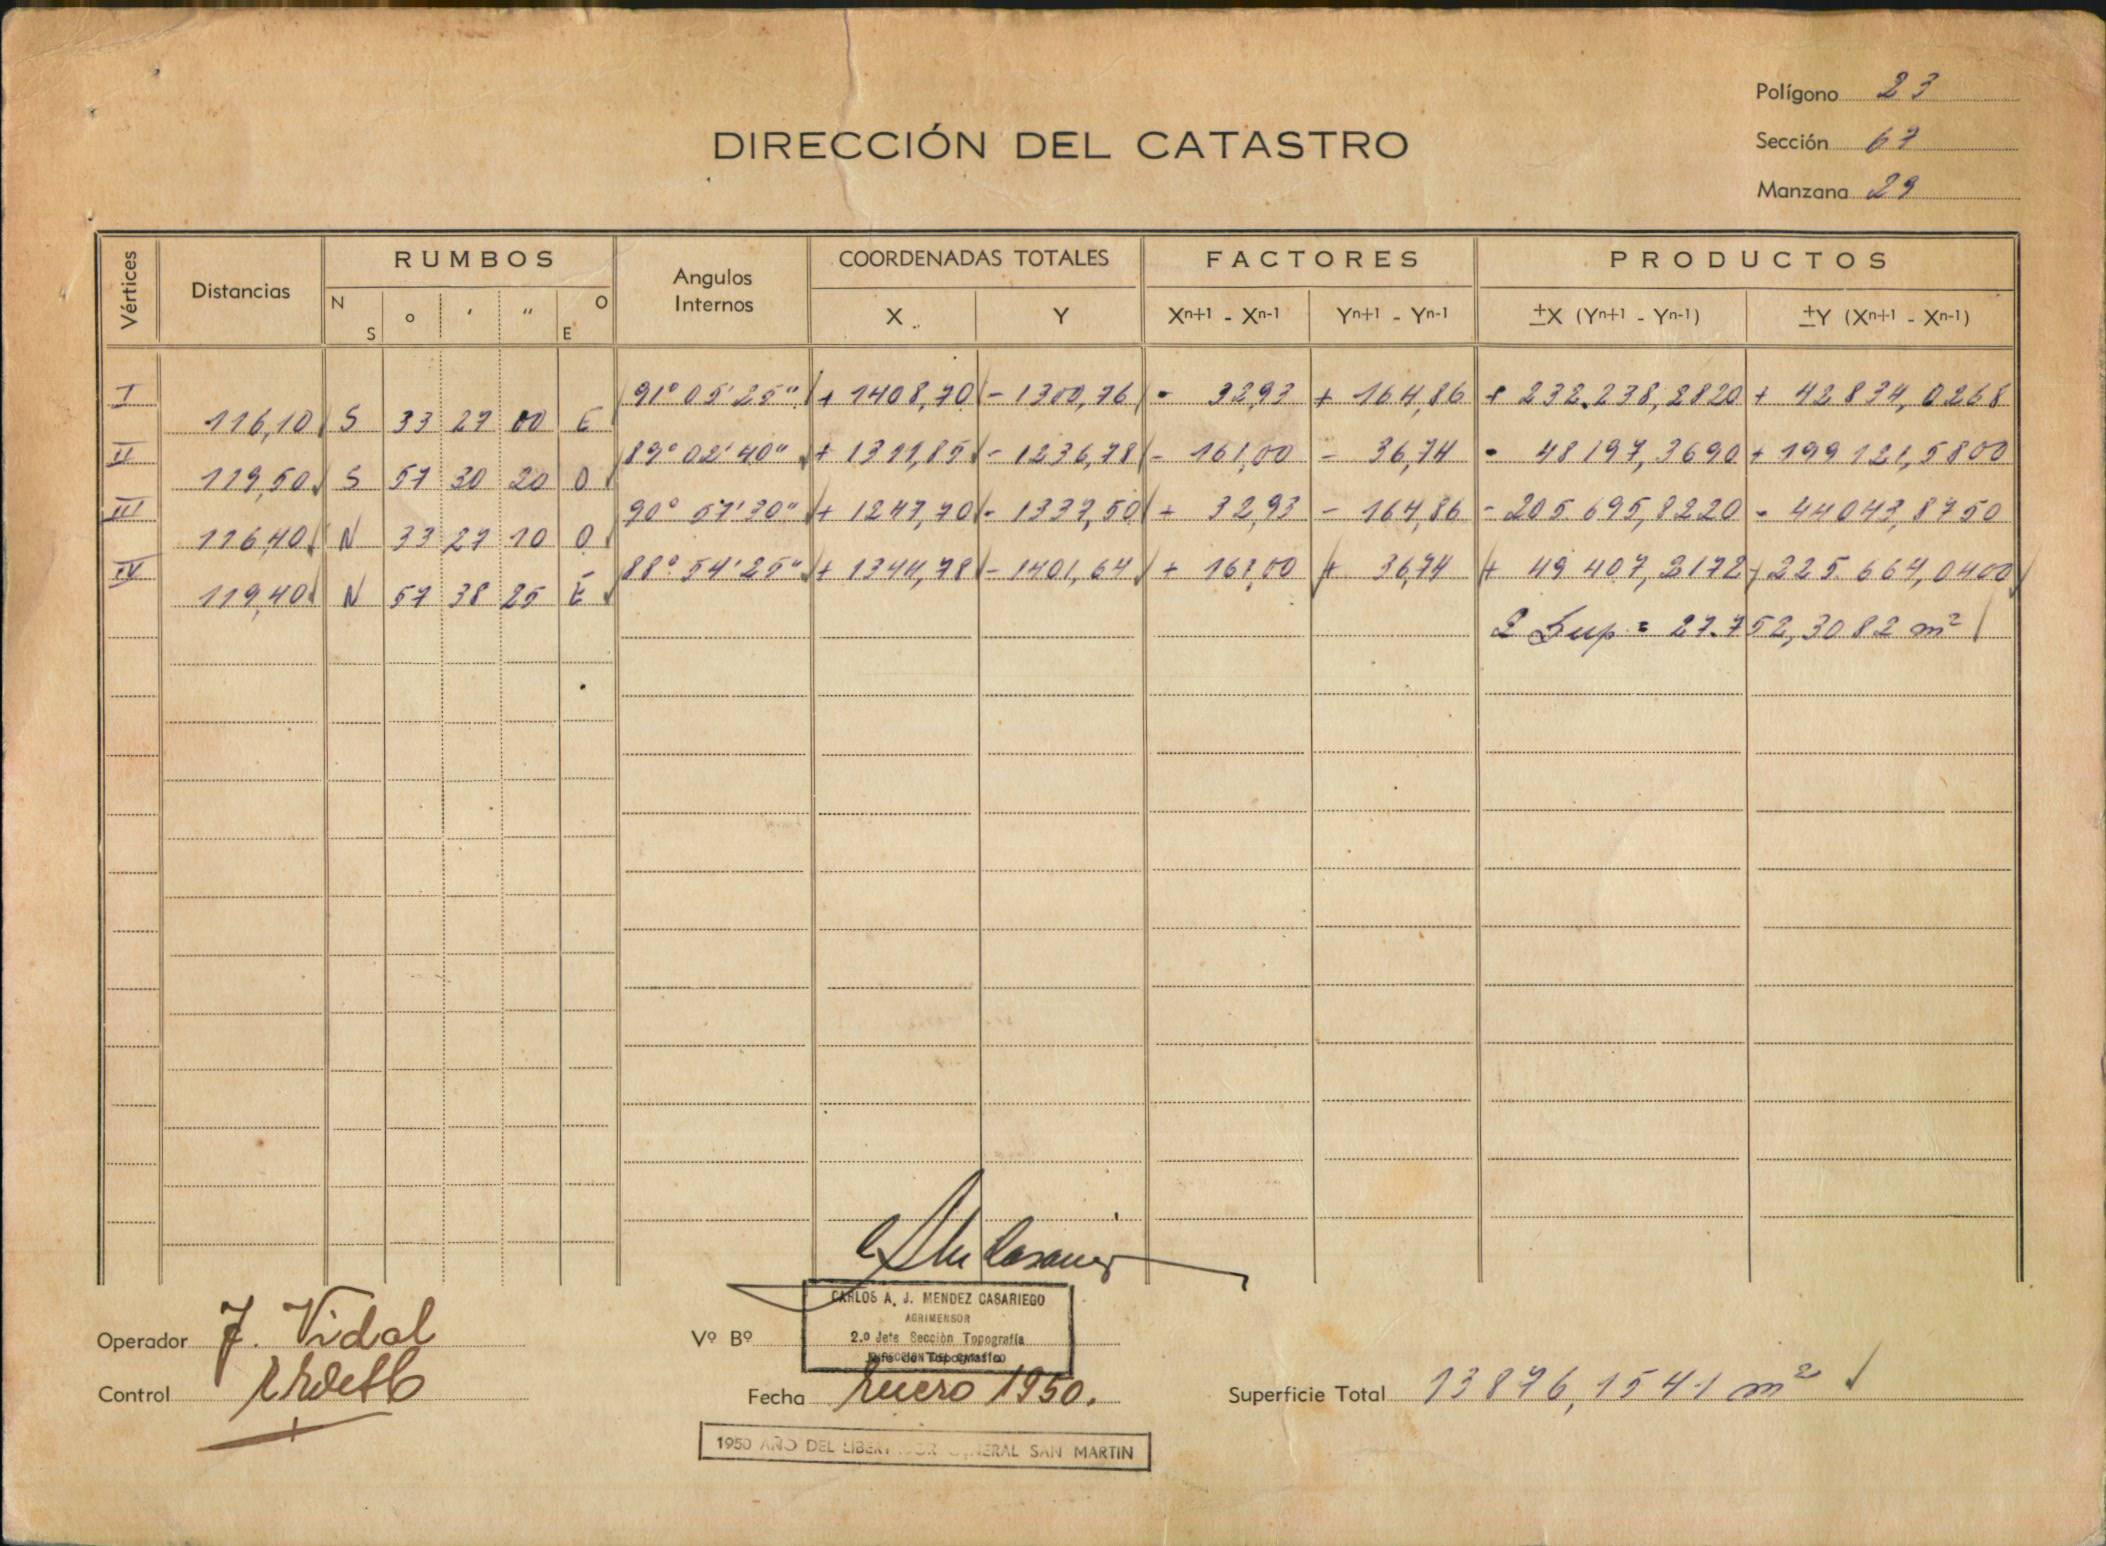 Polígono 23
DIRECCIÓN DEL CATASTRO
Sección 67
Manzana 29
Vértices Distancias RUMBOS Angulos Internos COORDENADAS TOTALES FACTORES PRODUCTOS
N S ° ' " O E X Y Xn+1 - Xn-1 Yn+1 - Yn-1 ±X (Yn+1 - Yn-1) ±Y (Xn+1 - Xn-1)
I 91° 05' 25" + 1408,70 - 1300,76 - 32,93 + 164,86 + 232.238,2820 + 42834,0268
116,10 S 33 27 00 E
II 89° 02' 40" + 1311,85 - 1236,78 - 161,00 - 36,74 - 48197,3690 + 199121,5800
119,50 S 57 30 20 O
III 90° 57' 30" + 1247,70 - 1337,50 + 32,93 - 164,86 - 205.695,8220 - 44043,8750
116,40 N 33 27 10 O
IV 88° 54' 25" + 1344,78 - 1401,64 + 161,00 + 36,74 + 49 407,2172 - 225.664,0400
119,40 N 57 38 25 E
2 Sup = 27.752,3082 m²
CARLOS A. J. MENDEZ CASARIEGO
AGRIMENSOR
Operador J. Vidal Vº Bº 2.º Jefe Sección Topografía
Jefe de Topografía
Control
Fecha Enero 1950.
Superficie Total 13876,1541 m²
1950 AÑO DEL LIBERTADOR GENERAL SAN MARTIN